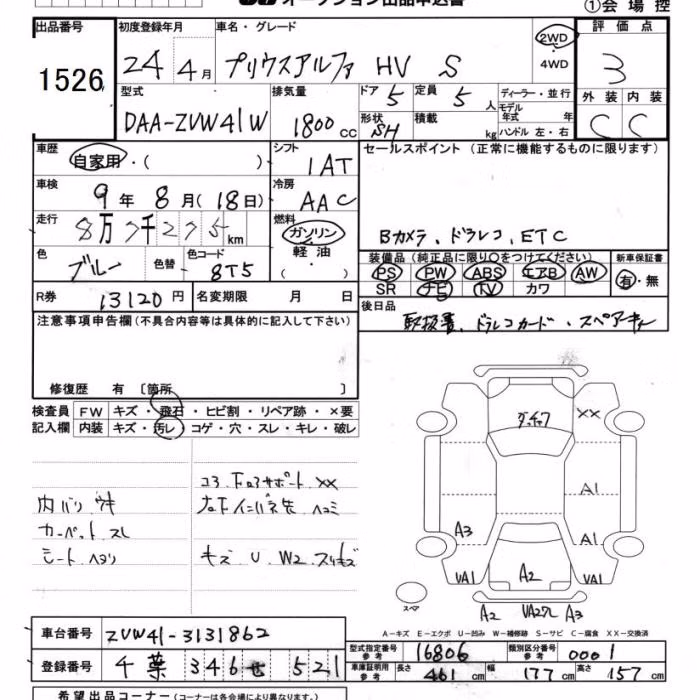 オークション出品申込書
①会場控
出品番号 初度登録年月 車名・グレード 評価点
1526 24年 4月 プリウスアルファ HV S 2WD 4WD 3
型式 排気量 ドア 定員 ディーラー・並行 外装 内装
DAA-ZVW41W 1800cc 5 5人 モデル年式 年 C C
形状 SH 積載 kg ハンドル 左・右
車歴 自家用・( ) シフト 1AT セールスポイント(正常に機能するものに限ります)
車検 9年 8月(18日) 冷房 AAC
走行 8万7千275km 燃料 ガソリン・軽油・( ) Bカメラ、ドラレコ、ETC
色 ブルー 色替 色コード 8T5 装備品(純正品に限り○をつけてください) 新車保証書
PS PW ABS エアB AW 有・無
SR ナビ TV カワ
R券 13120円 名変期限 月 日 後日品
取扱書、ドラレコカード・スペアキー
注意事項申告欄(不具合内容等は具体的に記入して下さい)
修復歴 有〔箇所 〕
検査員 FW キズ・飛石・ヒビ割・リペア跡・×要
記入欄 内装 キズ・汚レ・コゲ・穴・スレ・キレ・破レ
コアサポート XX
内バリ ウキ
カーペット スレ
シート ヘタリ
キズ U W2 スリキズ
XX
A1
A3 A1
VA1 A2 VA1
スペア A2 VA27L A3
A-キズ E-エクボ U-凹み W-補修跡 S-サビ C-腐食 XX-交換済
車台番号 ZVW41-3131862 型式指定番号 参考 16806 類別区分番号 参考 0001
登録番号 千葉 346 せ 521 車庫証明用 参考 長さ 461cm 幅 177cm 高さ 157cm
希望出品コーナー(コーナーは各会場により異なります。)